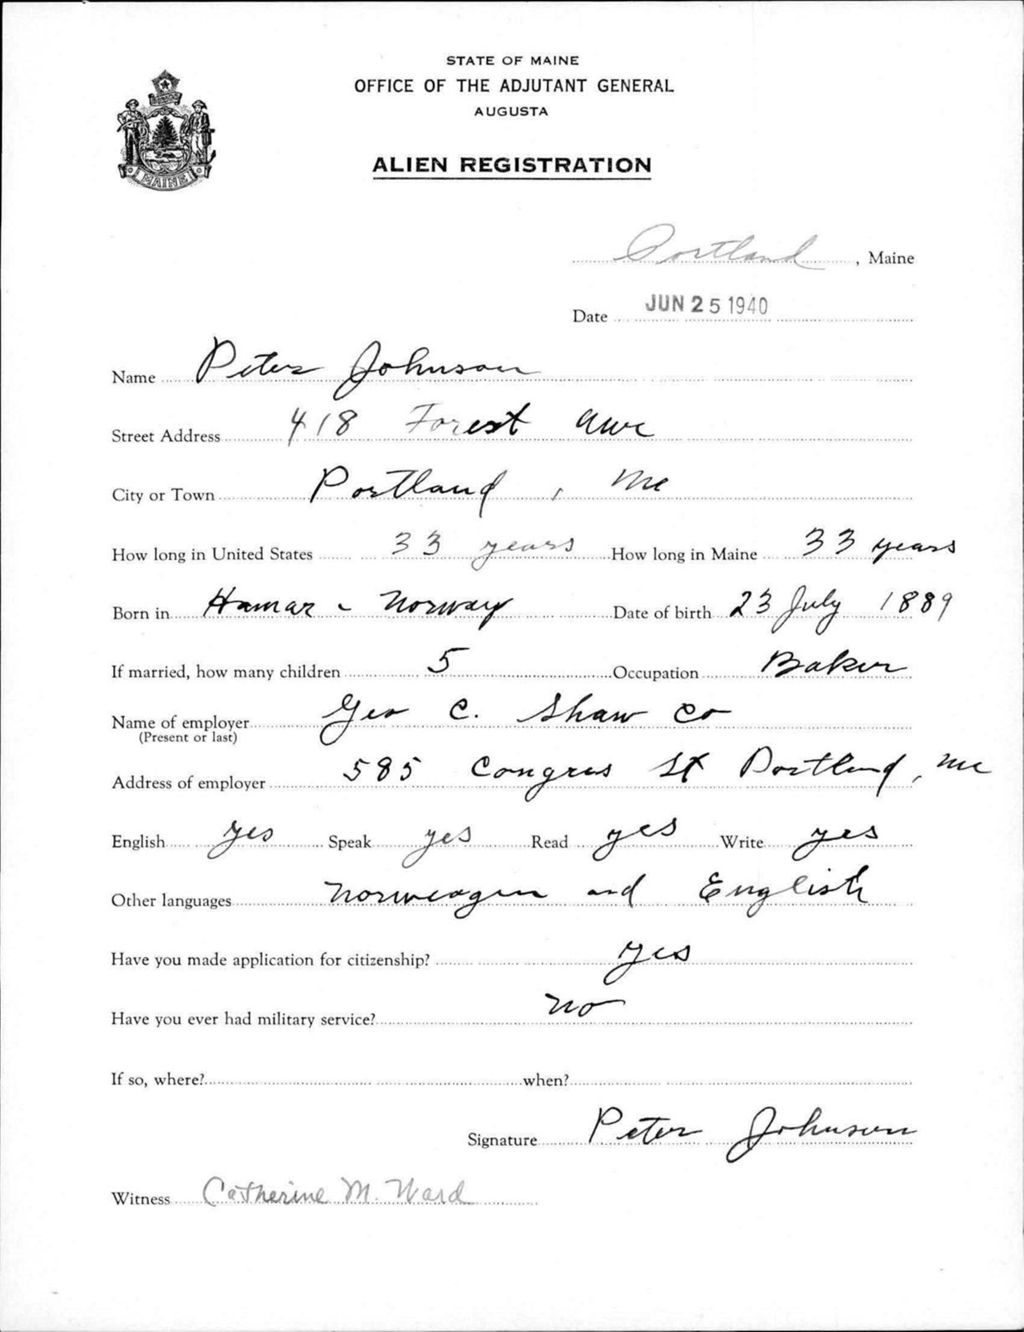 STATE OF MAINE
OFFICE OF THE ADJUTANT GENERAL
AUGUSTA
ALIEN REGISTRATION
MAINE
Portland, Maine
Date JUN 25 1940
Name Peter Johnson
Street Address 418 Forest Ave
City or Town Portland, Me
How long in United States 33 years How long in Maine 33 years
Born in Hamar - Norway Date of birth 23 July 1889
If married, how many children 5 Occupation Baker
Name of employer Geo C. Shaw Co
(Present or last)
Address of employer 585 Congres St Portland, Me
English yes Speak yes Read yes Write yes
Other languages Norweagen and English
Have you made application for citizenship? yes
Have you ever had military service? no
If so, where? when?
Signature Peter Johnson
Witness Catherine M. Ward